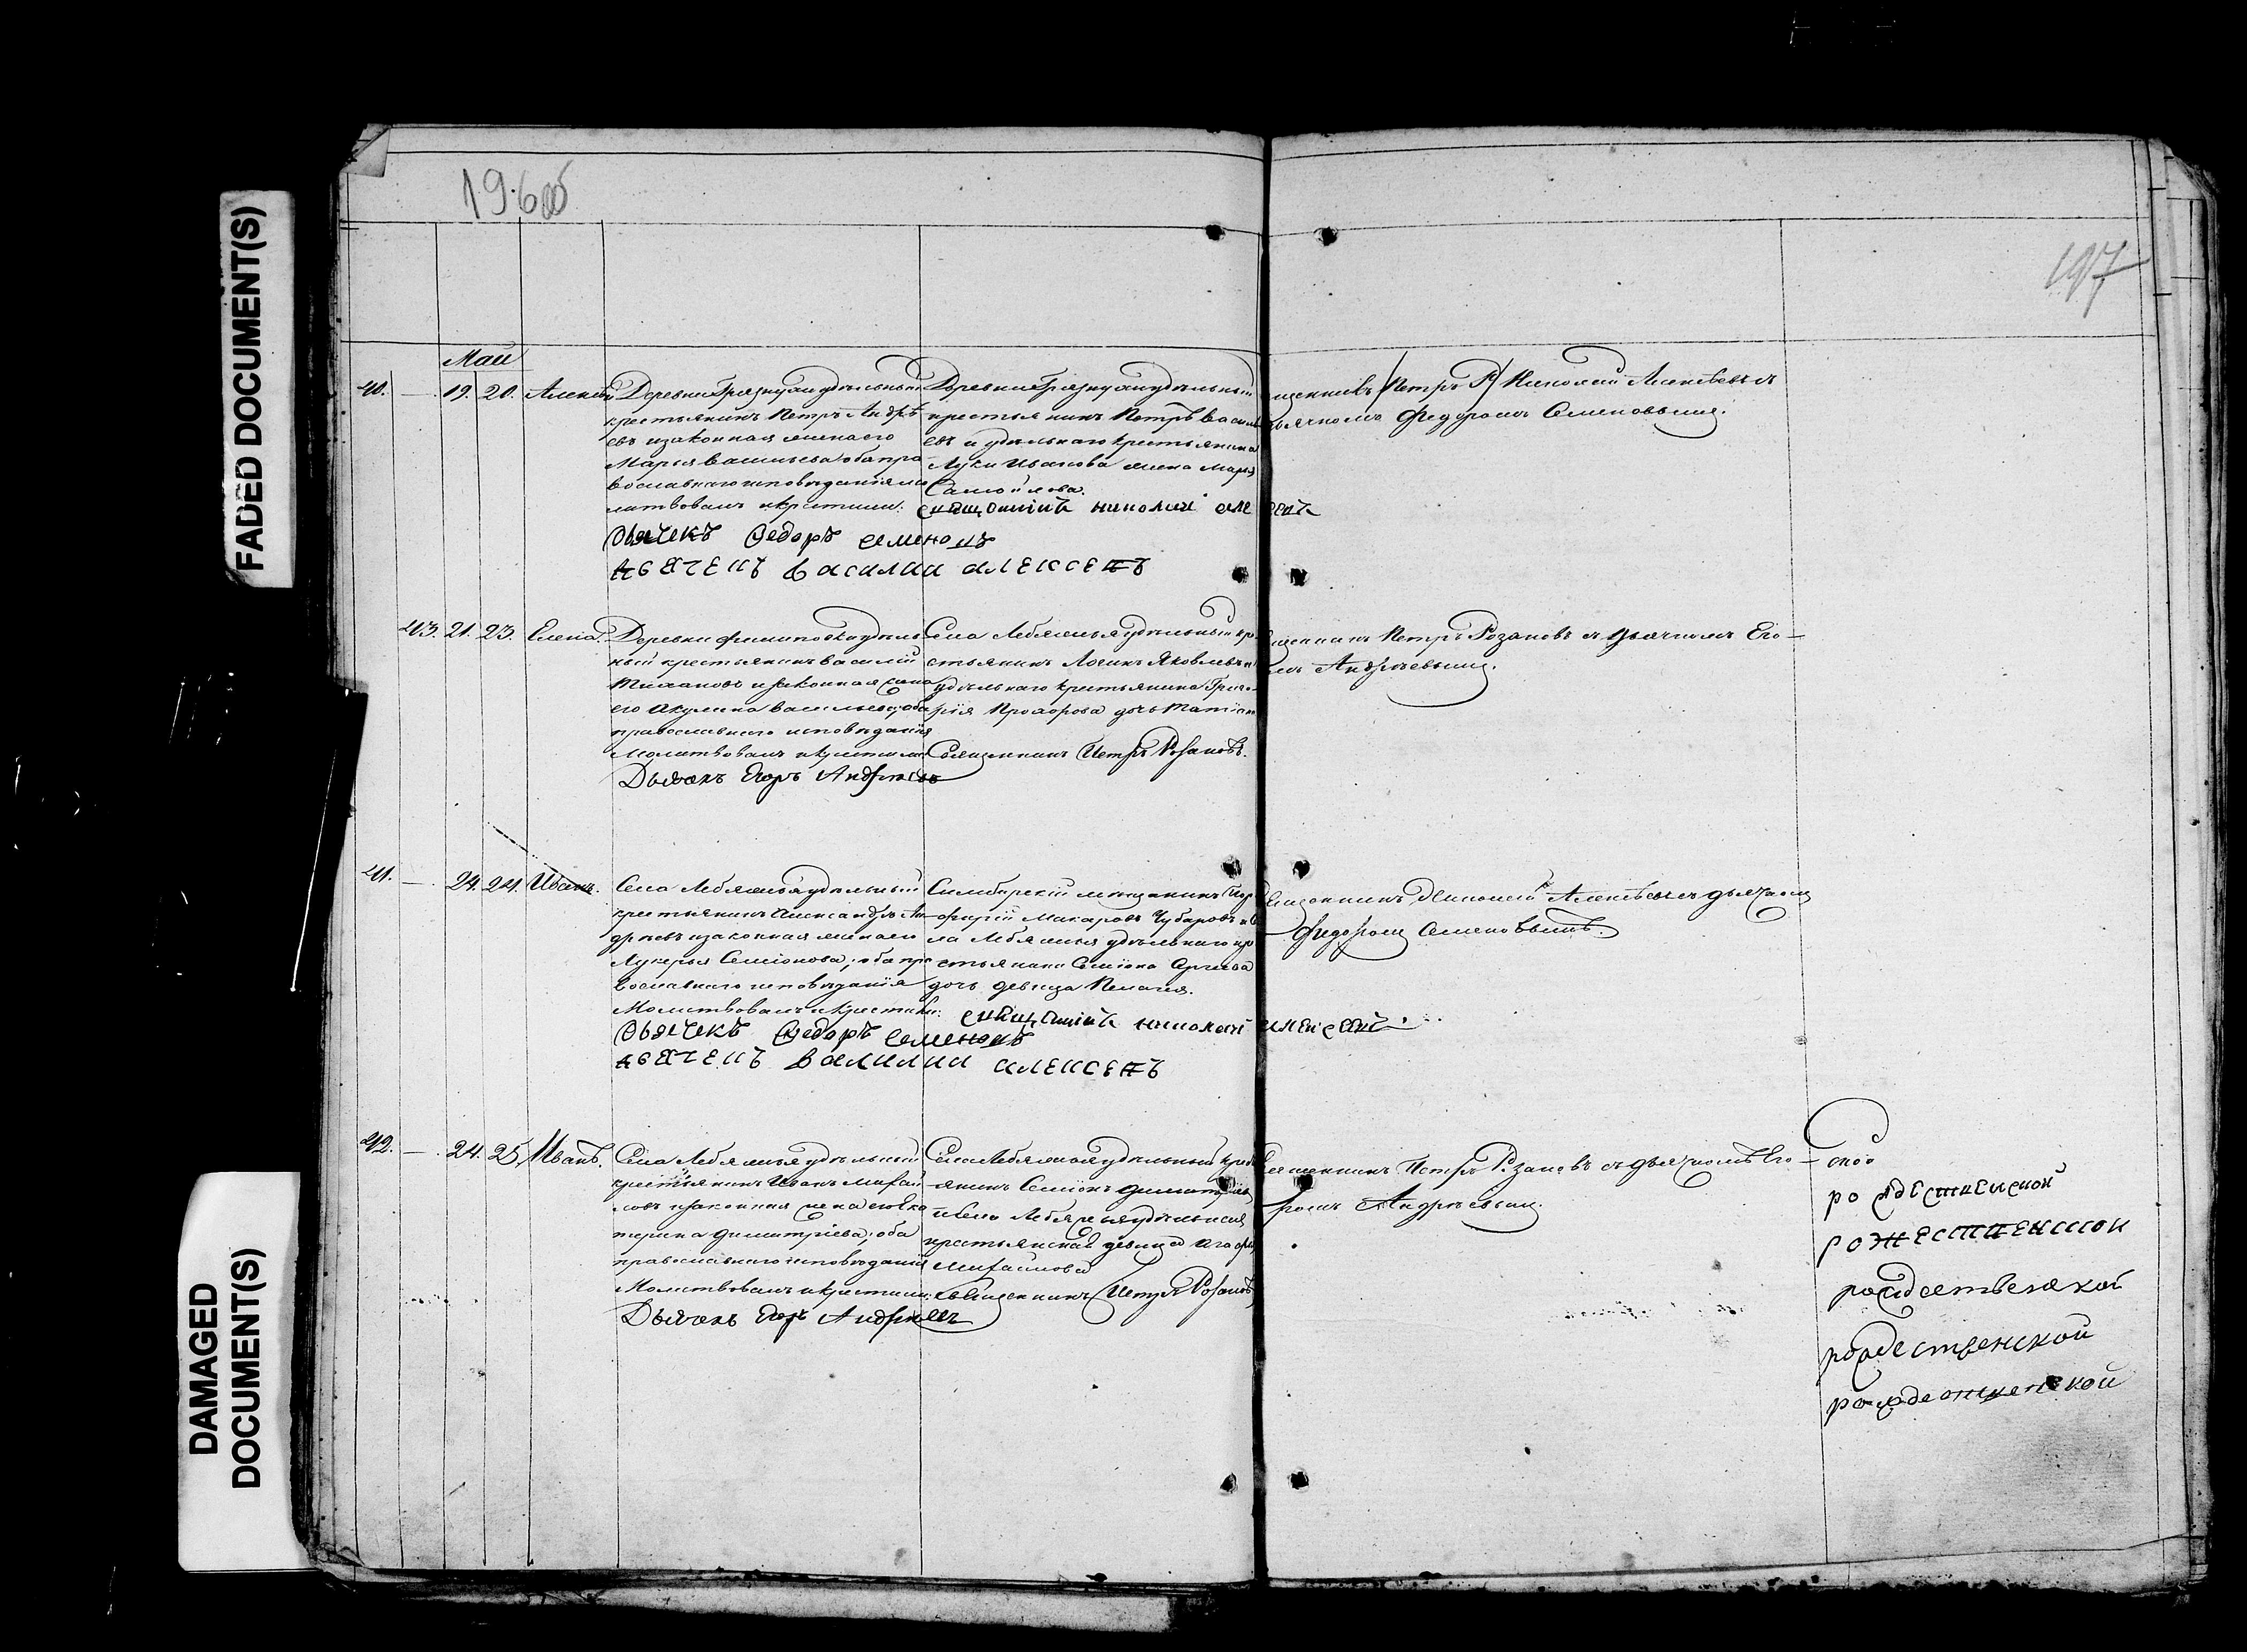 FADED DOCUMENT(S)
DAMAGED
DOCUMENT(S)
196 об
197
Маи
40. — 19. 20. Алексѣй
Деревни Грязнухи удѣльный
крестьянинъ Петръ Андрѣ-
евъ и законная жена его
Марья Васильева, оба пра-
вославнаго исповѣданія. Мо-
литвовалъ и крестилъ:
Деревни Грязнухи удѣльный
крестьянинъ Петръ Василь
евъ и удѣльнаго крестьянина
Луки Иванова жена Марья
Самойлова.
священникъ николай але ѣевъ
Дьячекъ Ѳедоръ семеновъ
дьячекъ василии алексеевъ
щенникъ /Петръ Р/ Николай Алексѣевъ съ
дьячкомъ Федоромъ Семеновымъ.
43. 21. 23. Елена.
Деревни Филиповки удѣль
ный крестьянинъ Василій
и законная жена
его Акулина Васильева; оба
православнаго исповѣданія
Молитвовалъ и крестилъ
Села Лебяжья удѣльный кре
стьянинъ Логинъ Яковлевъ и
удѣльнаго крестьянина Григо-
рія Прохорова дочь Татіана
Священникъ Петръ Розановъ.
Дьячекъ Егоръ Андреевъ
щенникъ Петръ Розановъ съ дьячкомъ Его-
ромъ Андрѣевымъ.
41. — 24. 24. Иванъ.
Села Лебяжья удѣльный
крестьянинъ Александръ Ан-
дрѣевъ и законная жена его
Лукерья Семіонова; оба пра
вославнаго исповѣданія
Молитвовалъ и крестилъ:
Симбирскій мещанинъ Пор
фирій Макаровъ Чубаровъ и Се
ла Лебяжья удѣльнаго кре
стьянина Семіона Сергеева
дочь девица Пелагея.
священникъ николай алексеевъ
Дьячекъ Ѳедоръ семеновъ
дьячекъ василии алексеевъ
Священникъ Николай Алексѣевъ съ дьячкомъ
Федоромъ Семеновымъ.
42. — 24. 25. Иванъ.
Села Лебяжья удѣльный
крестьянинъ Иванъ Михай
ловъ и законная жена его Ека
терина Димитріева; оба
православнаго исповѣданія
Молитвовалъ и крестилъ:
Села Лебяжья удѣльный крест
янинъ Семіонъ Димитріевъ
и Села Лебяжья удѣльная
крестьянская девица Агафья
Михайлова
Священникъ Петръ Розановъ
Дьячекъ Егоръ Андреевъ
Священникъ Петръ Розановъ съ дьячкомъ Его-
ромъ Андрѣевымъ.
рождественской
рожественской
рождественской
рождественской
рождественской